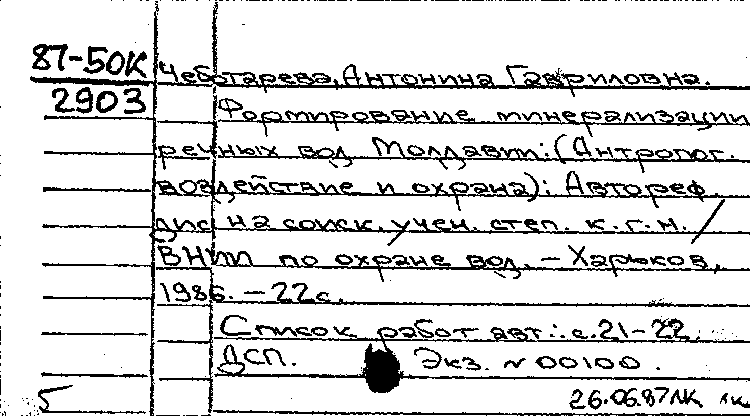 87-50К
2903
Чеботарева, Антонина Гавриловна.
Формирование минерализации
речных вод Молдавии: (Антропог.
воздействие и охрана): Автореф.
дис на соиск. учен. степ. к.г.н. /
ВНИИ по охране вод. – Харьков,
1986. – 22 с.
Список работ авт.: с. 21–22.
ДСП. Экз. N 00100.
5 26.06.87